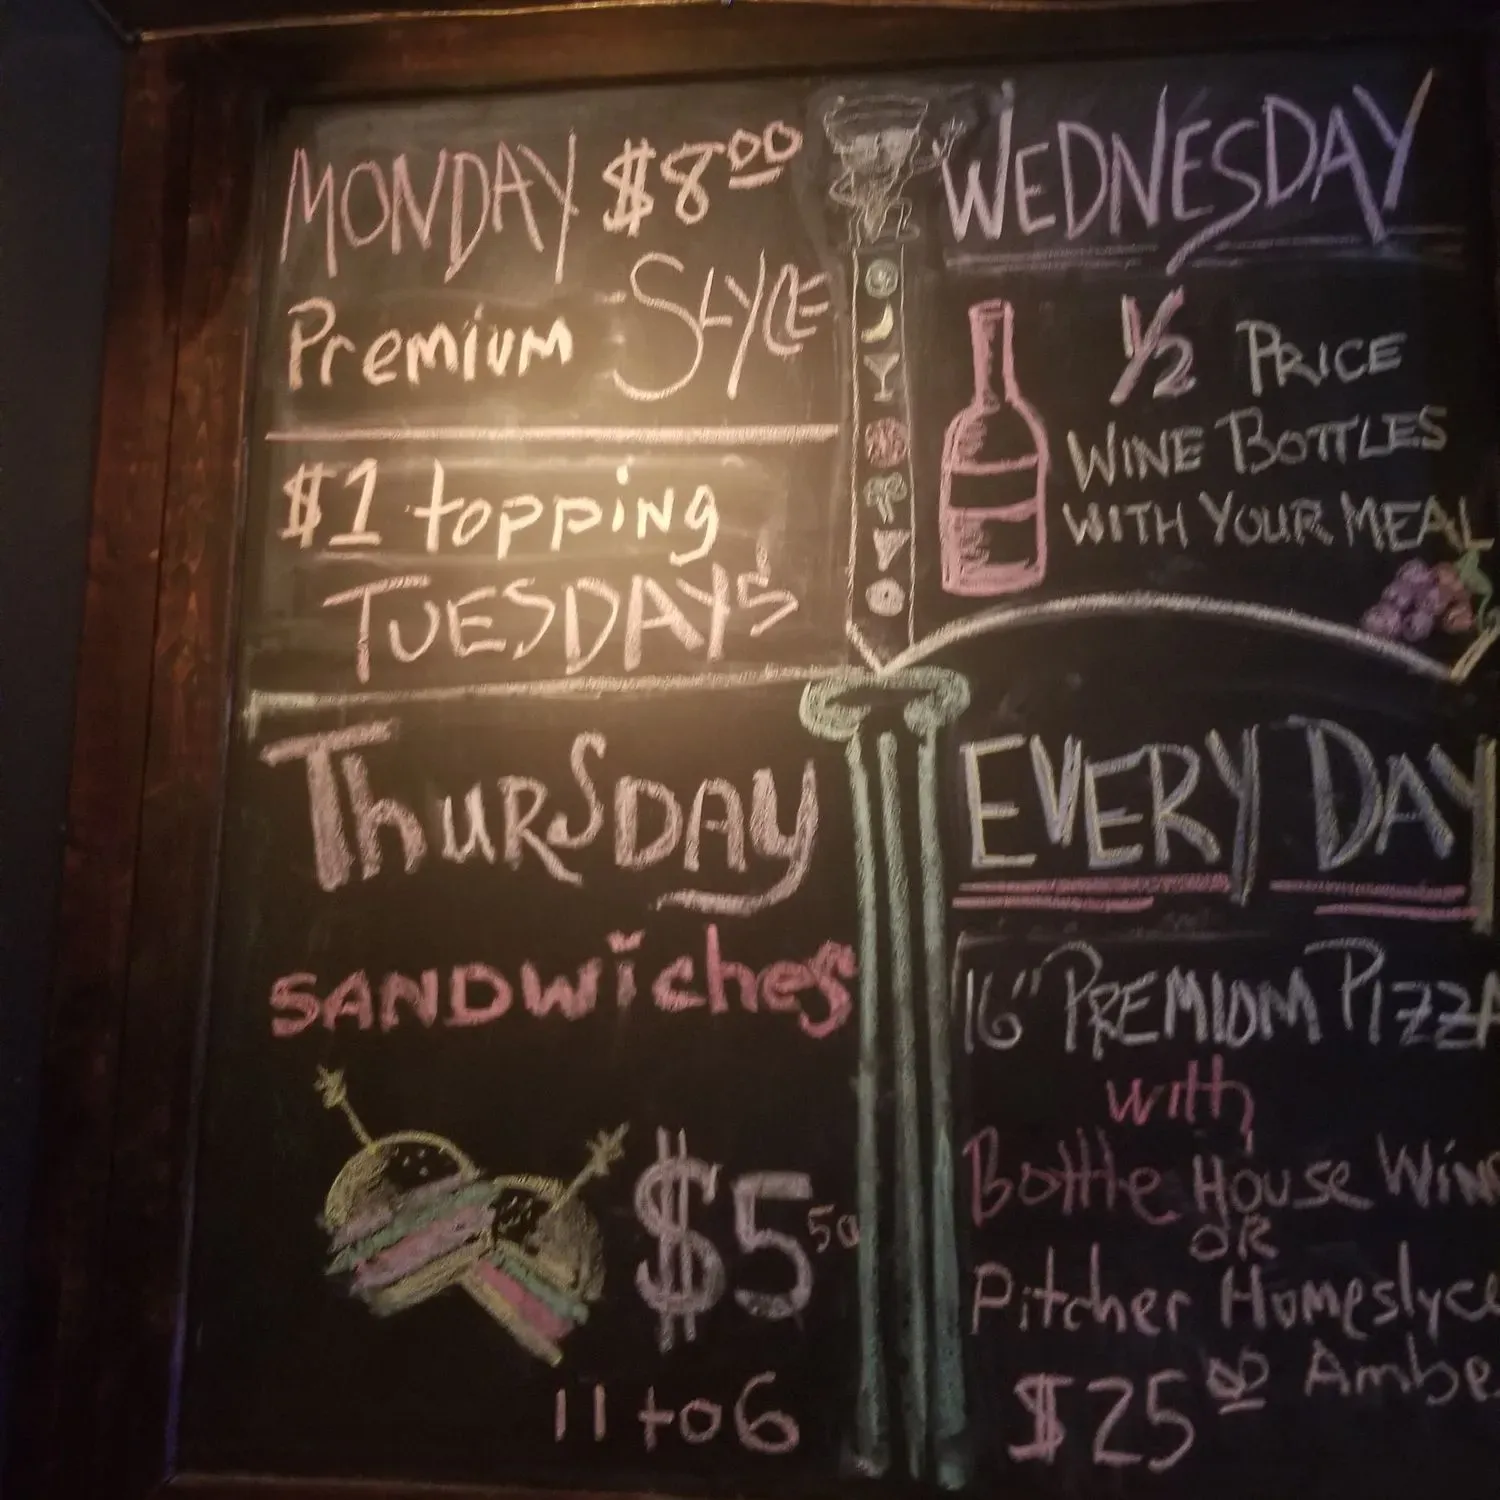 MONDAY $8.00
Premium STYLE
$1 topping
TUESDAY'S
THURSDAY
SANDWiches
$5.50
11 to 6
WEDNESDAY
1/2 PRICE
WINE BOTTLES
WITH YOUR MEAL
EVERY DAY
16" PREMIUM PIZZA
with
Botttle HOUSE WINE
OR
Pitcher Homeslyce
Ambe
$25.00